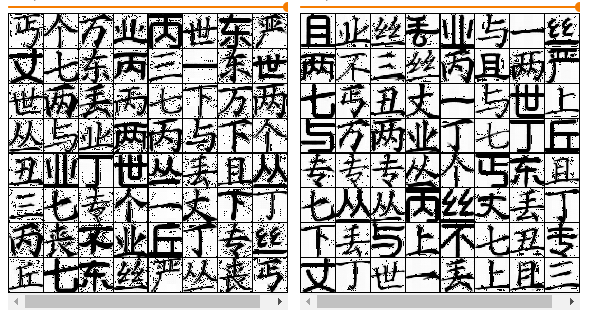 丐个万业丙世东严
丈七东丙三一东世
世两丢丙七下万两
丛与业两丙与下个
丑业丁世丛丢且丛
三七专个一丈下丁
丙丧不业丘丁专丝
丘七东丝严丛丧丐
且业丝丢业与一丝
两不三丝丙且两严
七丐丑丈一与世上
与万两业丁七丁丘
专专专丛个丐东且
七丛丛丙丝丈丢丁
下丢与上不七丑专
丈丁世一丢上且三